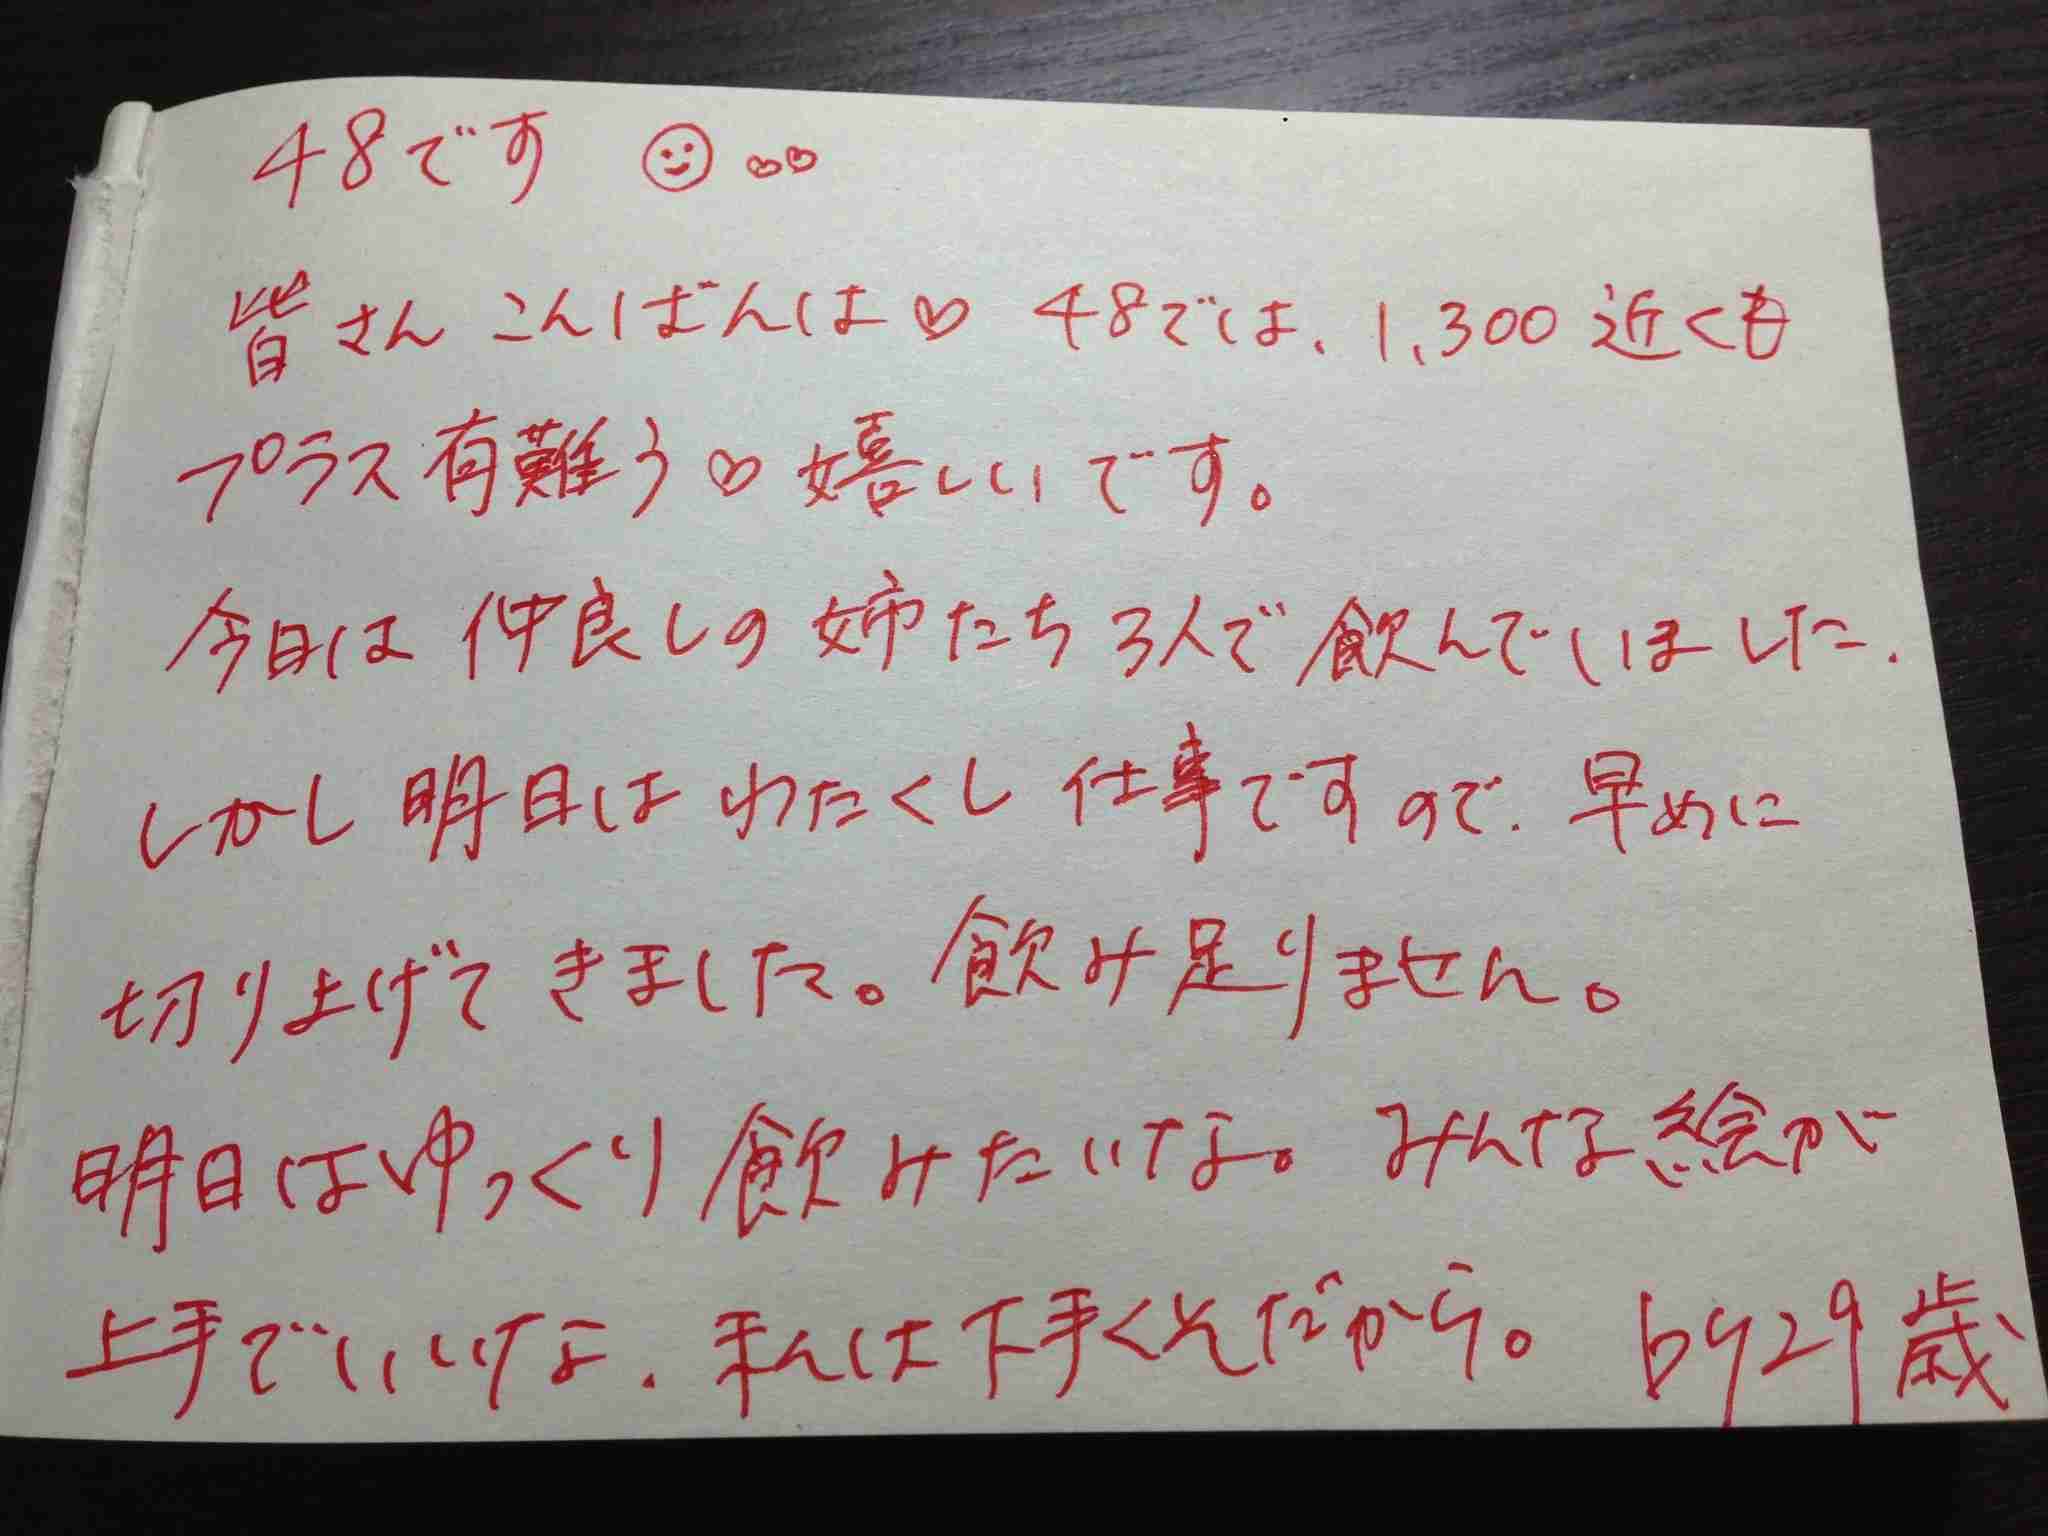 48です ☺ ♡♡
皆さん こんばんは♡ 48では、1,300 近くも
プラス有難う♡ 嬉しいです。
今日は 仲良しの 姉たち3人で 飲んでいました.
しかし 明日は わたくし 仕事ですので. 早めに
切り上げて きました。飲み足りません。
明日はゆっくり飲みたいな。 みんな絵が
上手でいいな. 私は下手くそだから。 by29歳